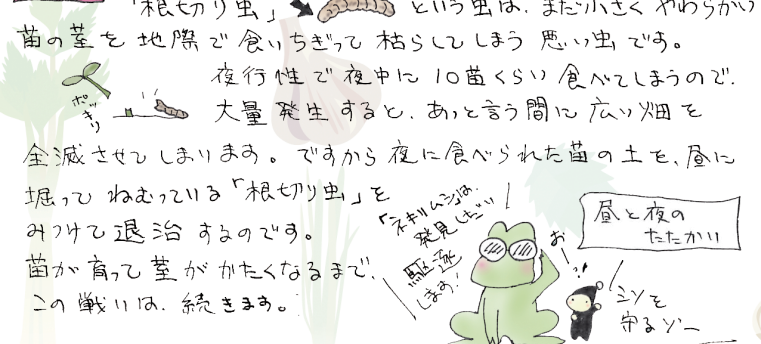 「根切り虫」 という虫は、まだ小さく やわらかい
苗の茎を 地際で 食いちぎって 枯らしてしまう 悪い虫 です。
夜行性で夜中に 10苗くらい 食べてしまうので、
ポッキリ
大量発生すると、あっと言う間に 広い畑を
全滅させてしまいます。ですから夜に食べられた苗の土を、昼に
掘って ねむっている「根切り虫」を
みつけて退治するのです。
苗が育って茎がかたくなるまで、
この戦いは、続きます。
「ネキリムシ」は、
発見しだい
駆逐
します!
昼と夜の
たたかい
おー!
シソを
守るゾー